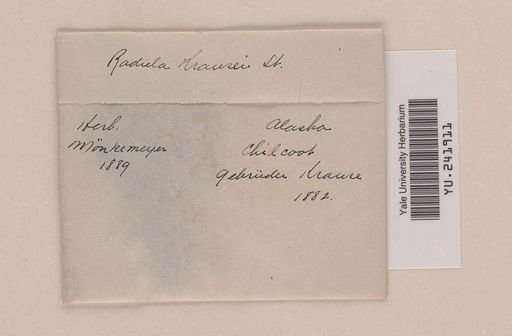 Radula Krausei St.
Herb.
Mönkemeyer
1889
Alaska
Chilcoot
Gebrüder Krause
1882.
Yale University Herbarium
YU.241911